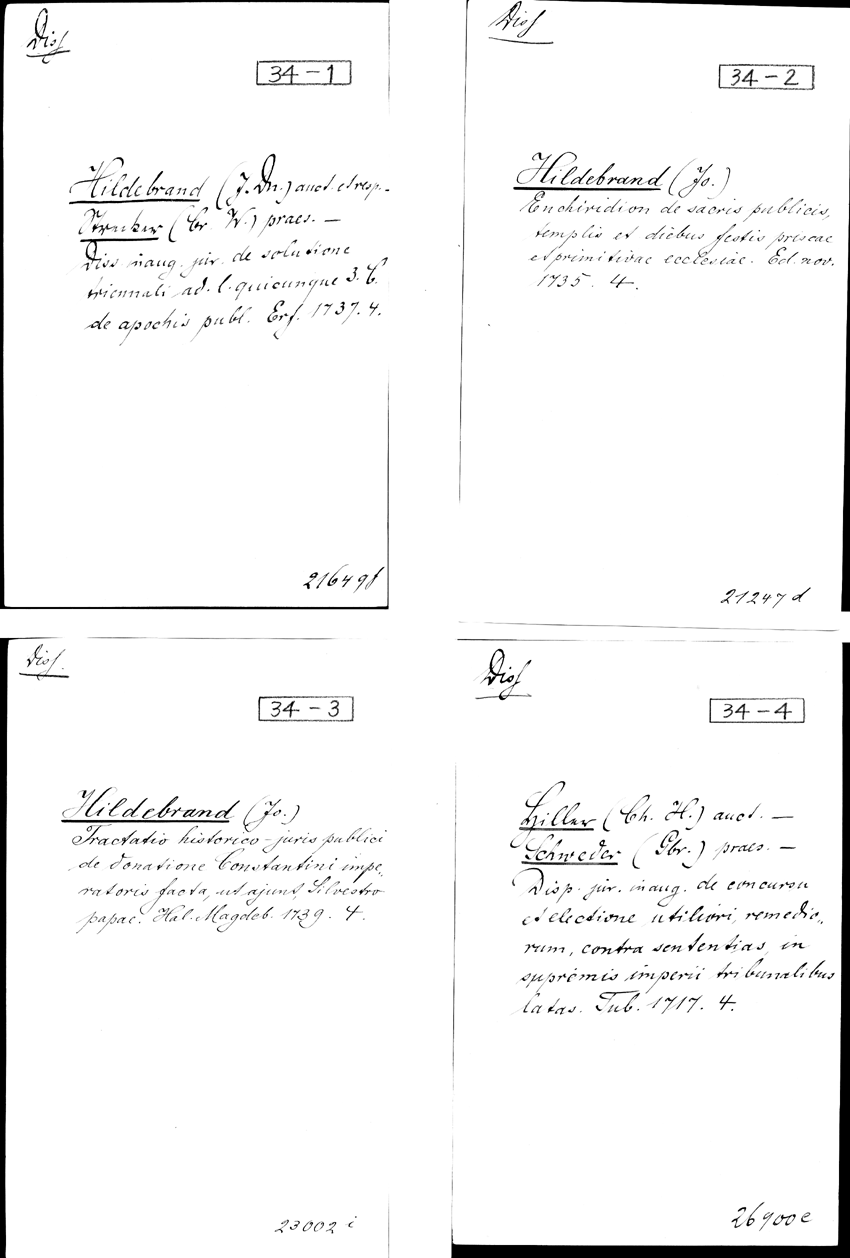 Diss
34-1
Hildebrand (J. Dn.) auct. et resp. -
Strecker (Cr. W.) praes. —
Diss inaug. jur. de solutione
triennali ad. l. quicunque 3. C.
de apochis publ. Erf. 1737. 4.
21649f
Diss
34-2
Hildebrand (Jo.)
Enchiridion de sacris publicis,
templis et diebus festis priscae
et primitivae ecclesiae. Ed. nov.
1735. 4.
21247d
Diss.
34-3
Hildebrand (Jo.)
Tractatio historico-juris publici
de donatione Constantini impe„
ratoris facta, ut ajunt, Silvestro
papae. Hal. Magdeb. 1739. 4.
23002 i
Diss
34-4
Hiller (Ch. H.) auct. —
Schweder (Gbr.) praes. —
Disp. jur. inaug. de concursu
et electione utiliori, remedio„
rum, contra sententias, in
supremis imperii tribunalibus
latas. Tub. 1717. 4.
26900e